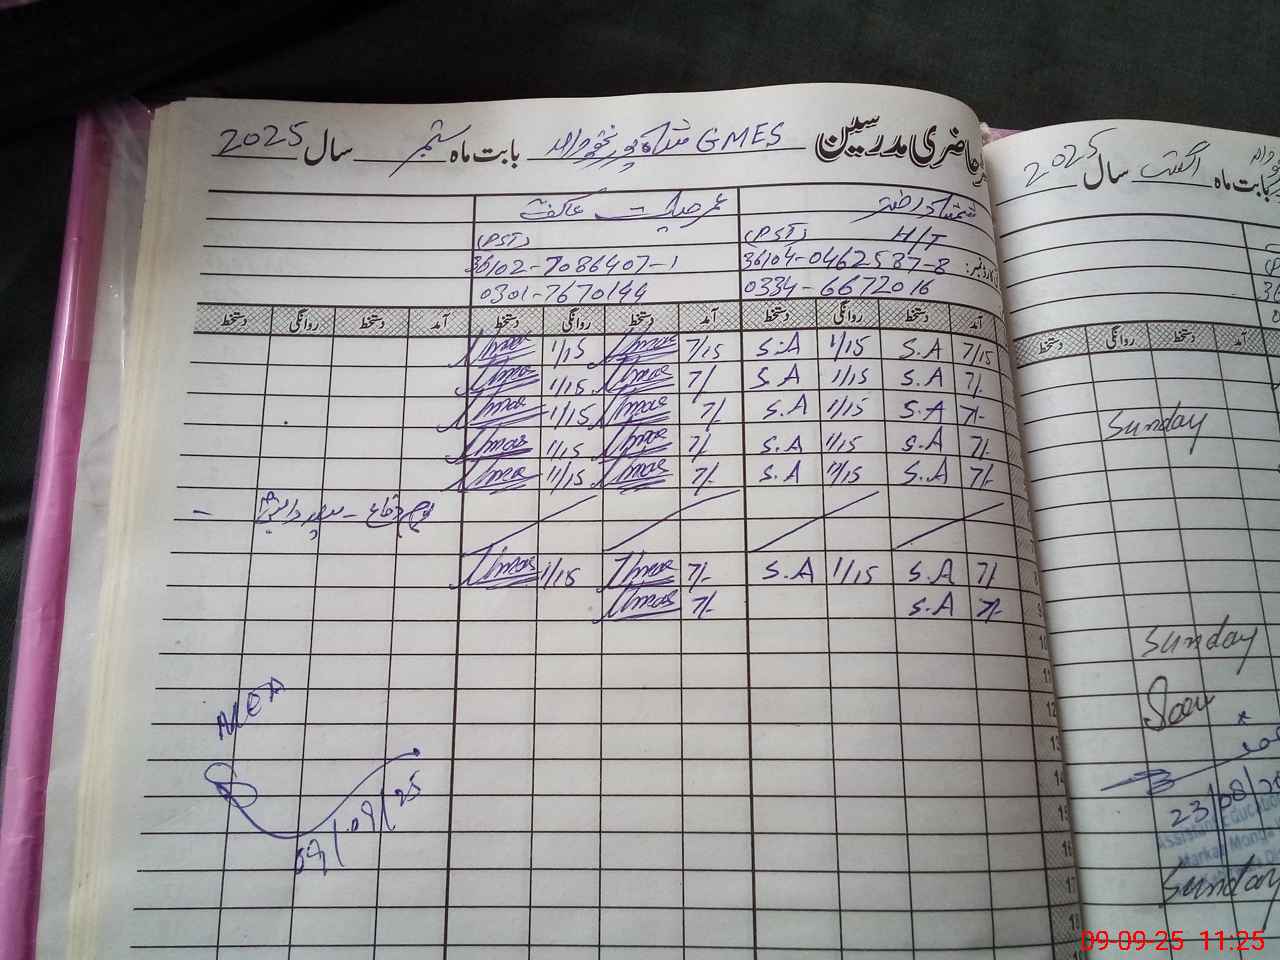 حاضری مدرسین GMES شاہ پور بابت ماہ ستمبر سال 2025
شمشاد اختر عمر حیات عاکف
H/T (PST) (PST)
36104-0462537-8 36102-7086407-1
0334-6672016 0301-7670144
آمد دستخط روانگی دستخط آمد دستخط روانگی دستخط آمد دستخط روانگی دستخط
7/15 S.A 1/15 S.A 7/15 Umar 1/15 Umar
7/- S.A 1/15 S.A 7/- Umar 1/15 Umar
7/- S.A 1/15 S.A 7/- Umar 1/15 Umar
7/- S.A 1/15 S.A 7/- Umar 1/15 Umar
7/- S.A 11/15 S.A 7/- Umar 11/15 Umar
7/- S.A 1/15 S.A 7/- Umar 1/15 Umar
7/- S.A 7/- Umar
10
11
12
13
14
15
16
17
18
MEA
09/09/25
بابت ماہ اگست سال 2025
آمد دستخط روانگی دستخط
Sunday
Sunday
Seen
23/08/20
Assistant Education
Markaz Mong
Sunday
09-09-25 11:25